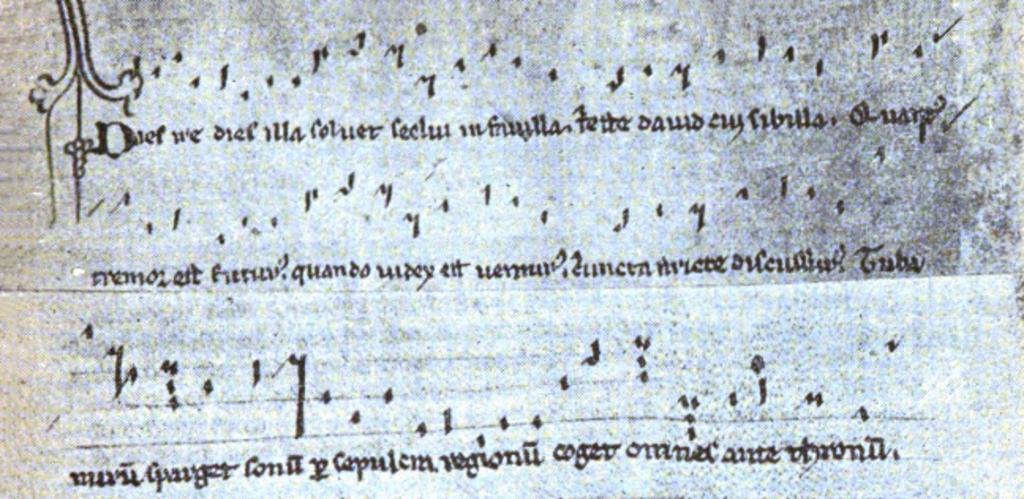 Dies ire dies illa solvet seclū in favilla. teste david cū sibilla. Quant9
tremor est futur9. quando iudex est ventur9. cuncta stricte discussur9. Tuba
mirū sparget sonū ꝑ sepulcra regionū coget omnes ante thronū.